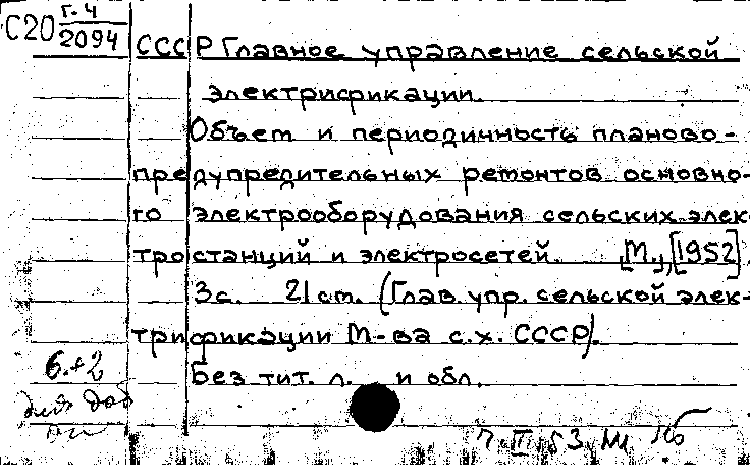 С20 Г-4
2094
СССР Главное управление сельской
электрификации.
Объем и периодичность планово-
предупредительных ремонтов основно-
го электрооборудования сельских элек
тростанций и электросетей. [М.], [1952]
3с. 21 см. (Глав. упр. сельской элек-
трификации М-ва с.х. СССР).
6.+2
Без тит. л. и обл.
для доб
7 III 53